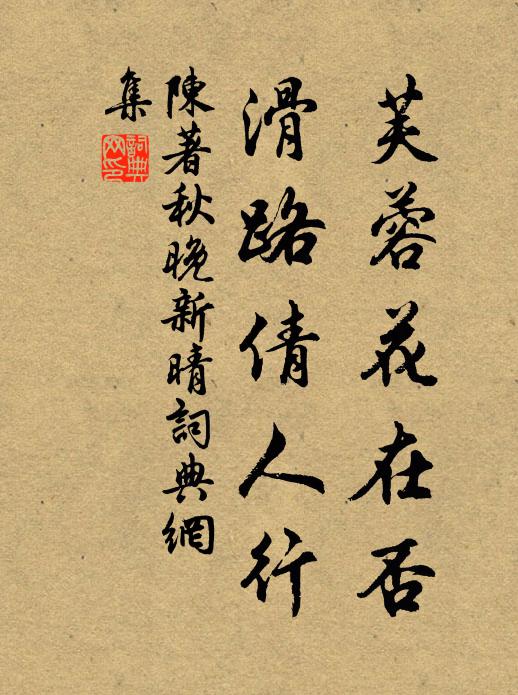 芙蓉花在否
滑路倩人行
陳著秋晚新晴詞典網
集
詞典
网印